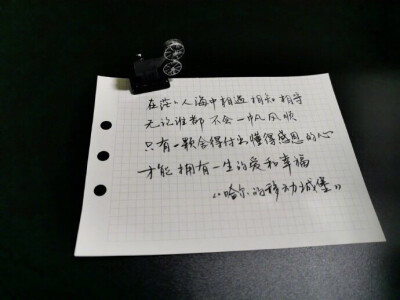 在茫々人海中相遇 相知 相守
无论谁都 不会一帆风顺
只有一颗舍得付出懂得感恩的心
才能 拥有一生的爱和幸福
《哈尔的移动城堡》